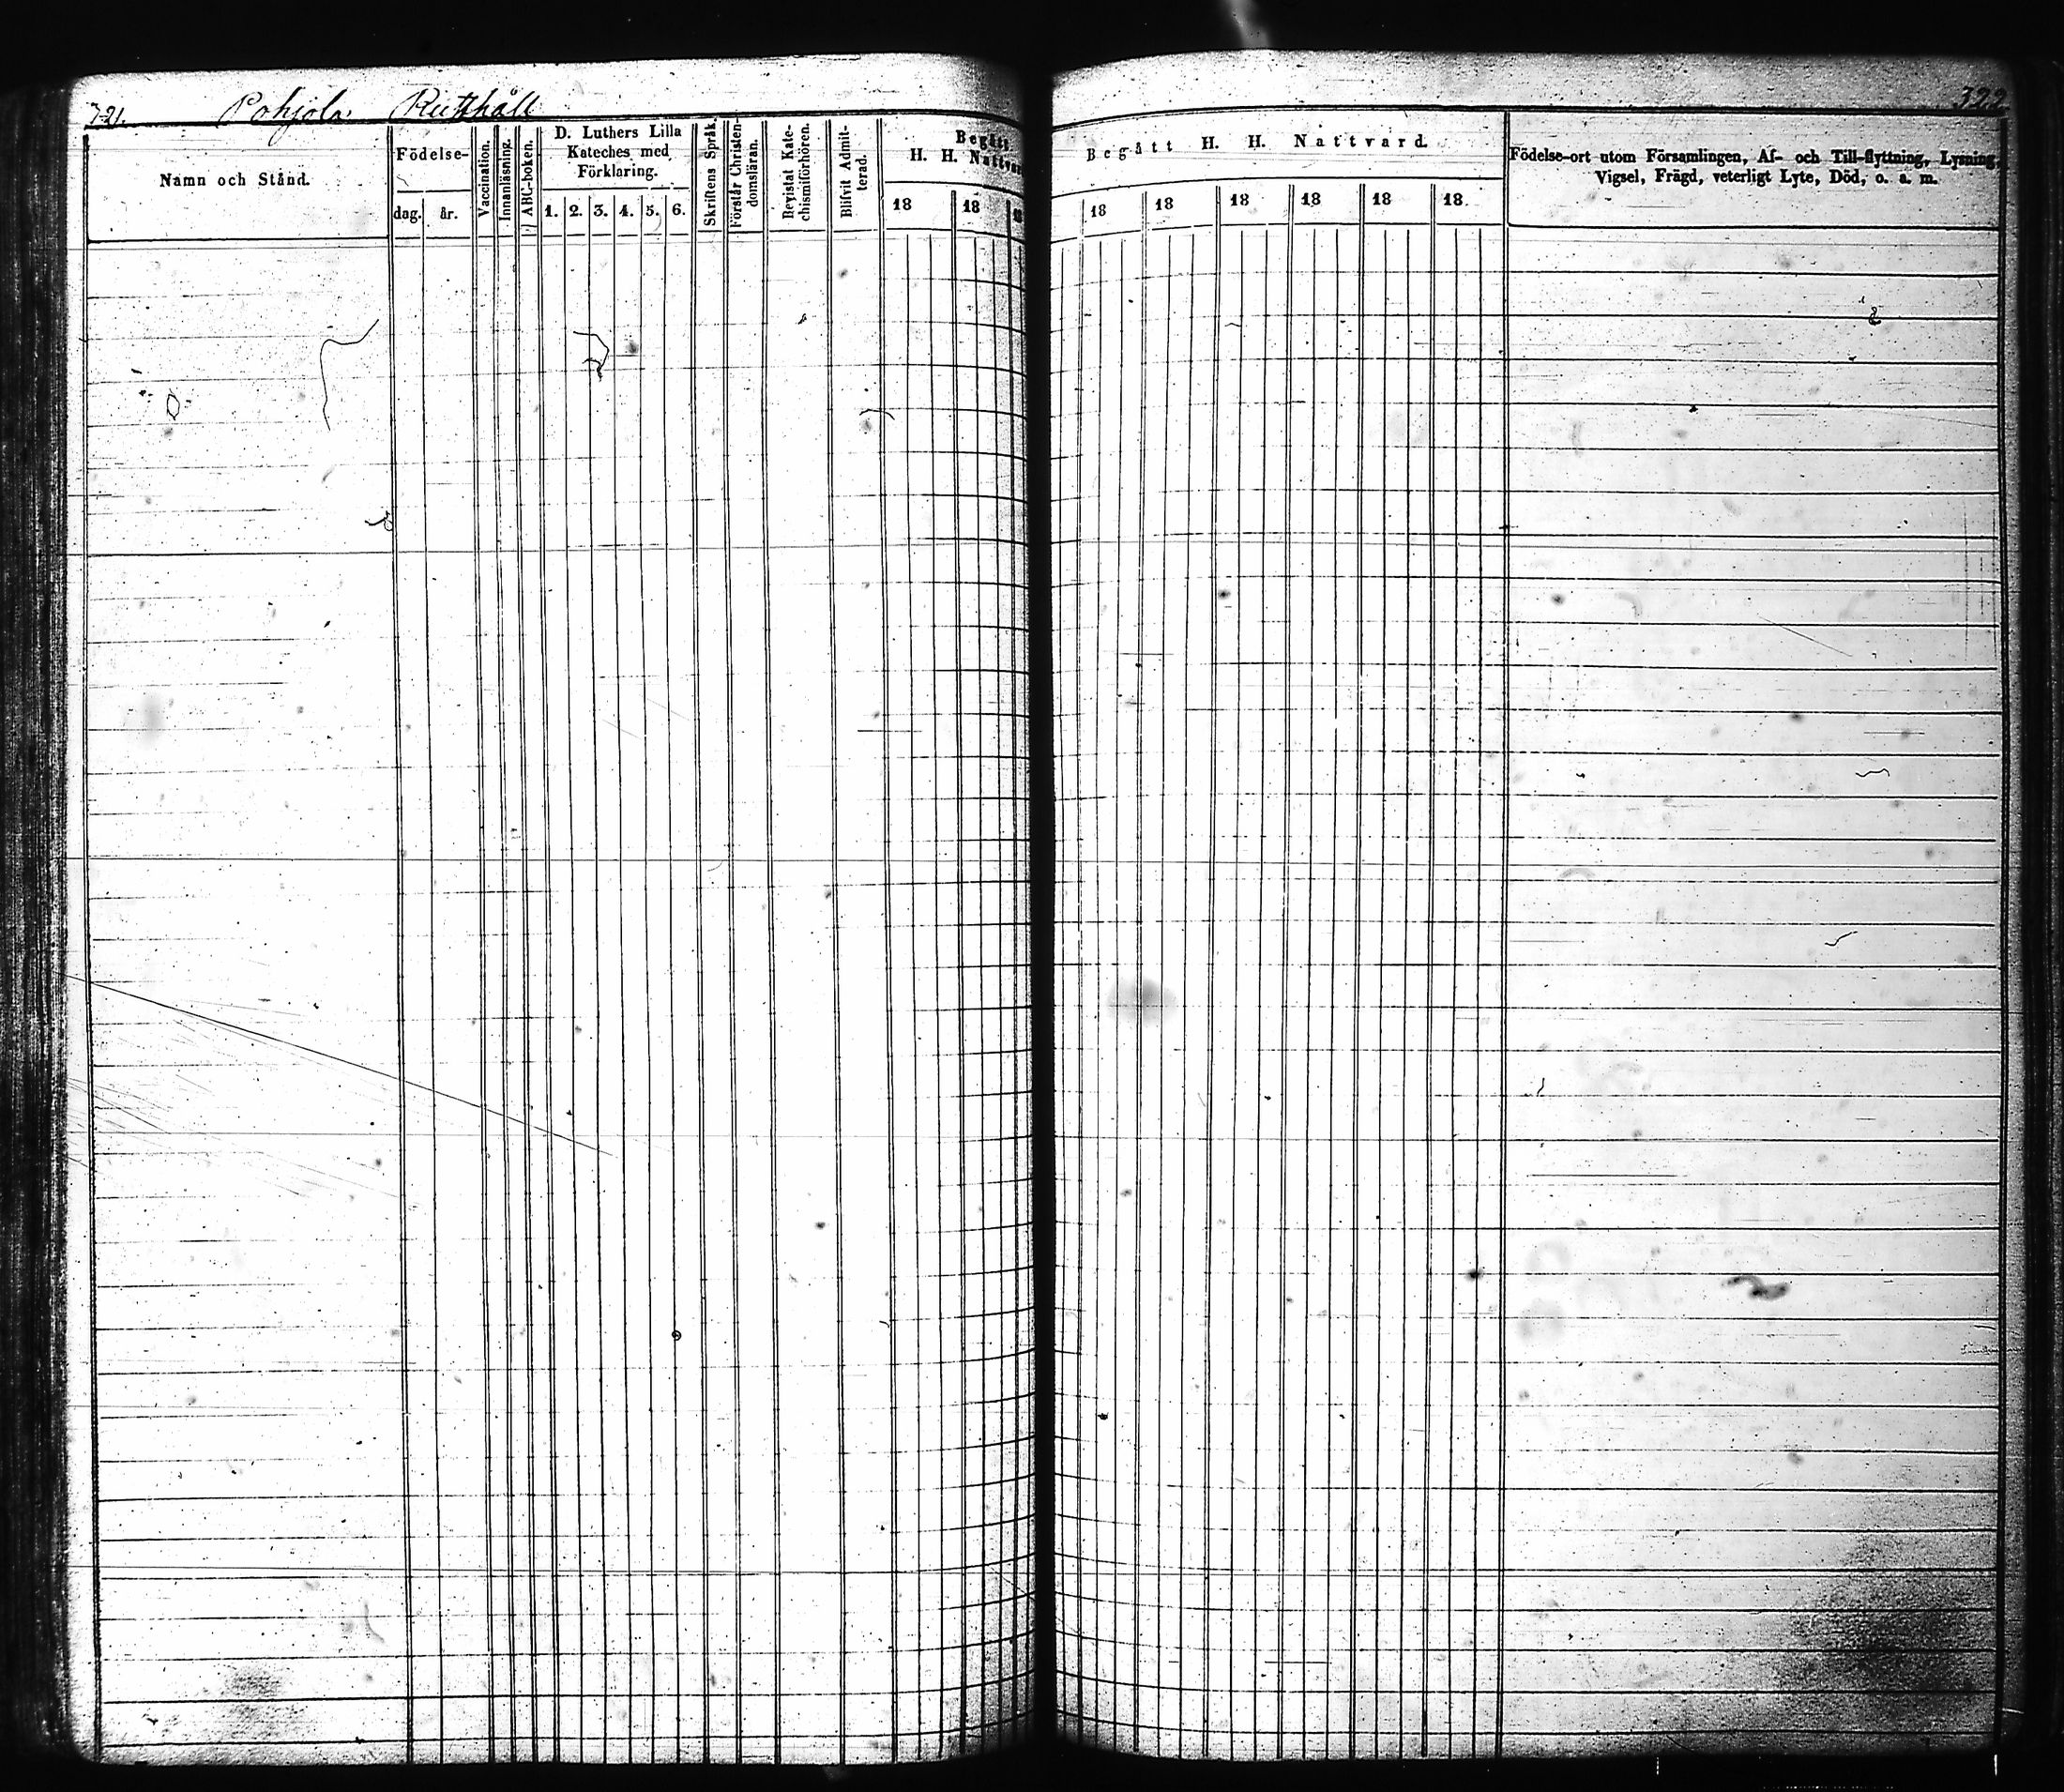 321. Pohjola. Rusthåll
Namn och Stånd.
Födelse-
dag. år.
Vaccination.
Innanläsning.
ABC-boken.
D. Luthers Lilla
Kateches med
Förklaring.
1. 2. 3. 4. 5. 6.
Skriftens Språk.
Förstår Christen-
domsläran.
Bevistat Kate-
chismiförhören.
Blifvit Admit-
terad.
Begått
H. H. Nattvard
18 18 18
322
Begått H. H. Nattvard.
18 18 18 18 18 18.
Födelse-ort utom Församlingen, Af- och Till-flyttning, Lysning,
Vigsel, Frägd, veterligt Lyte, Död, o. s. m.